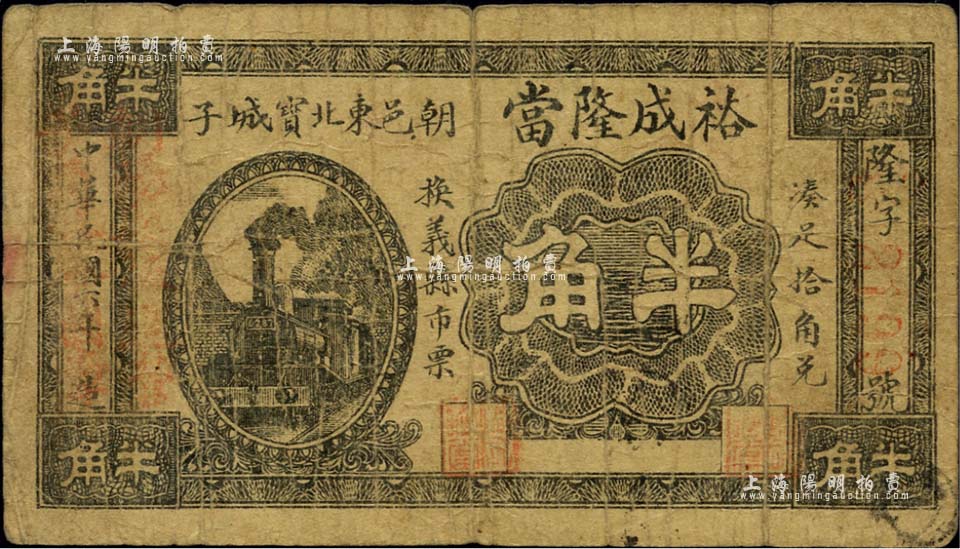 裕成隆當
朝邑東北寶城子
半角
半角
半角
隆字
號
湊足拾角兑
換義縣市票
中華民國六年造
半角
半角
上海陽明拍賣
www.yangmingauction.com
上海陽明拍賣
www.yangmingauction.com
上海陽明拍賣
www.yangmingauction.com